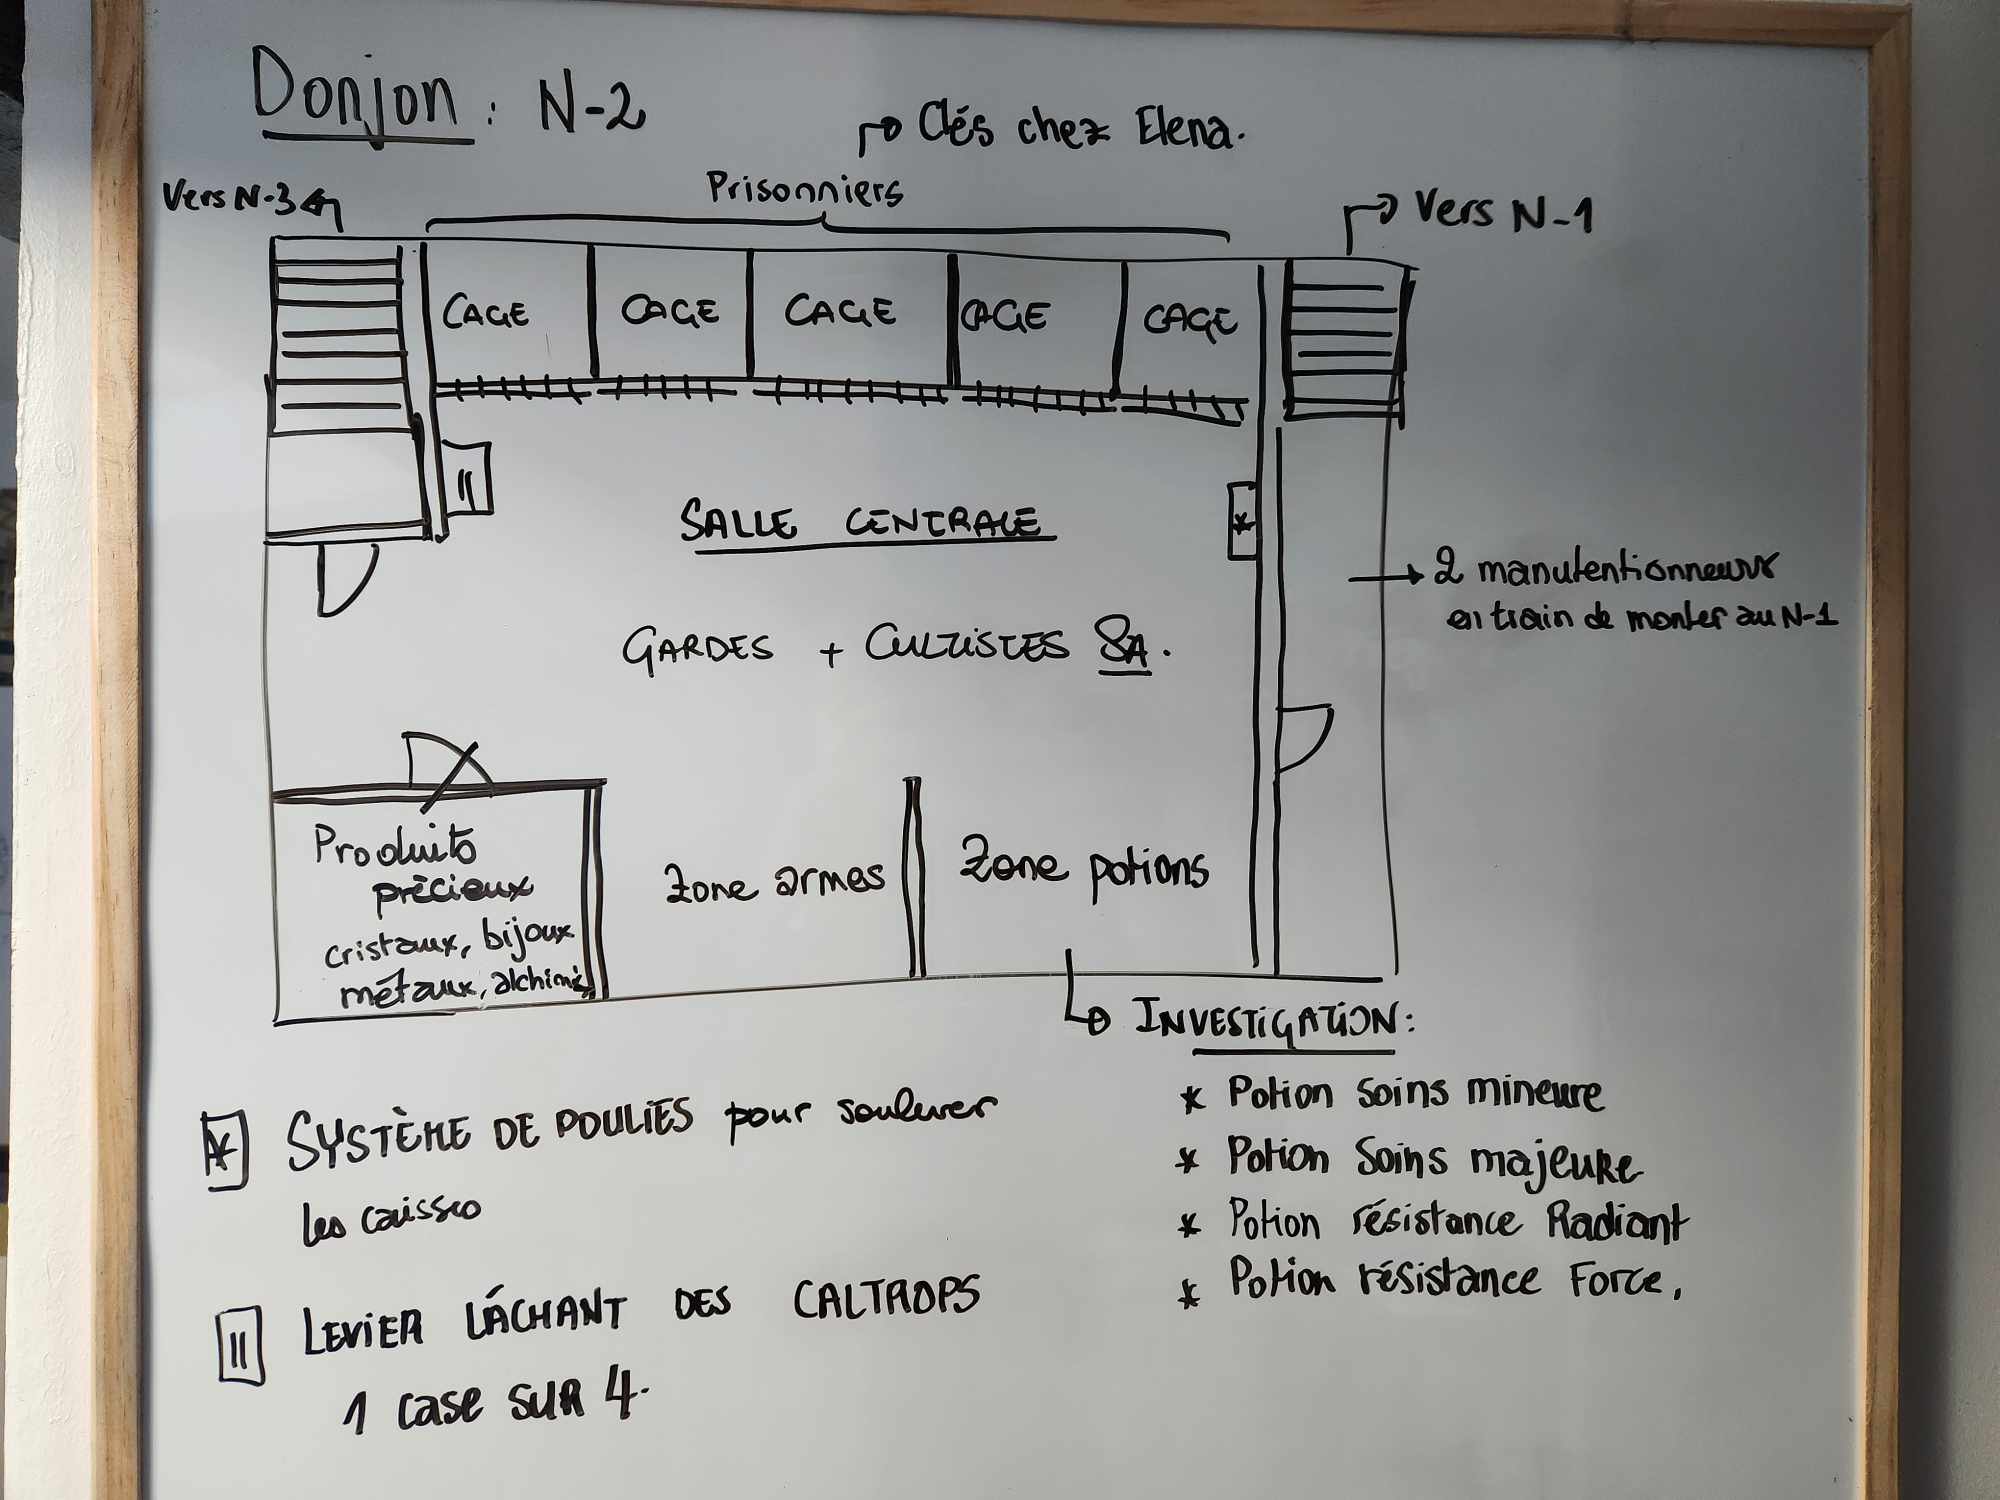 Donjon : N-2
Clés chez Elena.
Prisonniers
Vers N-3
Vers N-1
CAGE
CAGE
CAGE
CAGE
CAGE
||
SALLE CENTRALE
*
2 manutentionneurs
en train de monter au N-1
GARDES + CULTISTES SA.
Produits
précieux
cristaux, bijoux
métaux, alchimie
Zone armes
Zone potions
INVESTIGATION:
* Potion Soins mineure
* Potion Soins majeure
* Potion résistance Radiant
* Potion résistance Force.
* SYSTÈME DE POULIES pour soulever
les caisses
|| LEVIER LÂCHANT DES CALTROPS
1 case SUR 4.